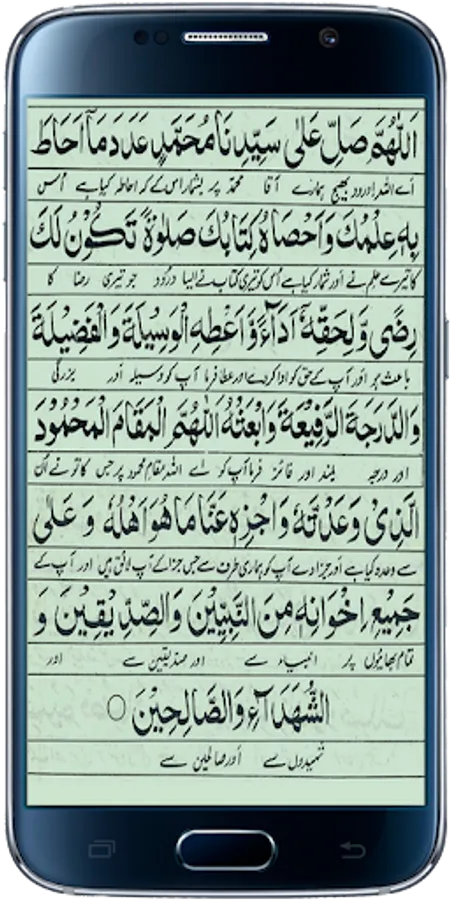 اَللّٰهُمَّ صَلِّ عَلٰى سَيِّدِنَا مُحَمَّدٍ عَدَدَ مَآ اَحَاطَ
اے اللہ درود بھیج ہمارے آقا محمدؐ پر بشمار اس کے کہ احاطہ کیا ہے اُس
بِهٖ عِلْمُكَ وَاَحْصَاهُ كِتَابُكَ صَلٰوةً تَكُوْنُ لَكَ
کا تیرے علم نے اور شمار کیا ہے اُس کو تیری کتاب نے ایسا درُود جو تیری رضا کا
رِضًى وَّلِحَقِّهٖٓ اَدَآءً وَّاَعْطِهِ الْوَسِيْلَةَ وَالْفَضِيْلَةَ
باعث ہو اور آپ کے حق کو ادا کر دے اور عطا فرما آپ کو وسیلہ اور بزرگی
وَالدَّرَجَةَ الرَّفِيْعَةَ وَابْعَثْهُ اَللّٰهُمَّ الْمَقَامَ الْمَحْمُوْدَ
اور درجہ بلند اور فائز فرما آپ کو اے اللہ مقام محمود پر جس کا تو نے اُن
الَّذِىْ وَعَدْتَّهٗ وَاجْزِهٖ عَنَّا مَا هُوَ اَهْلُهٗ وَ عَلٰى
سے وعدہ کیا ہے اور جزا دے آپ کو ہماری طرف سے جس جزا کے آپ لائق ہیں اور آپ کے
جَمِيْعِ اِخْوَانِهٖ مِنَ النَّبِيّٖنَ وَالصِّدِّيْقِيْنَ وَ
تمام بھائیوں پر انبیاء سے اور صدیقین سے اور
الشُّهَدَآءِ وَالصَّالِحِيْنَ ○
شہیدوں سے اور صالحین سے